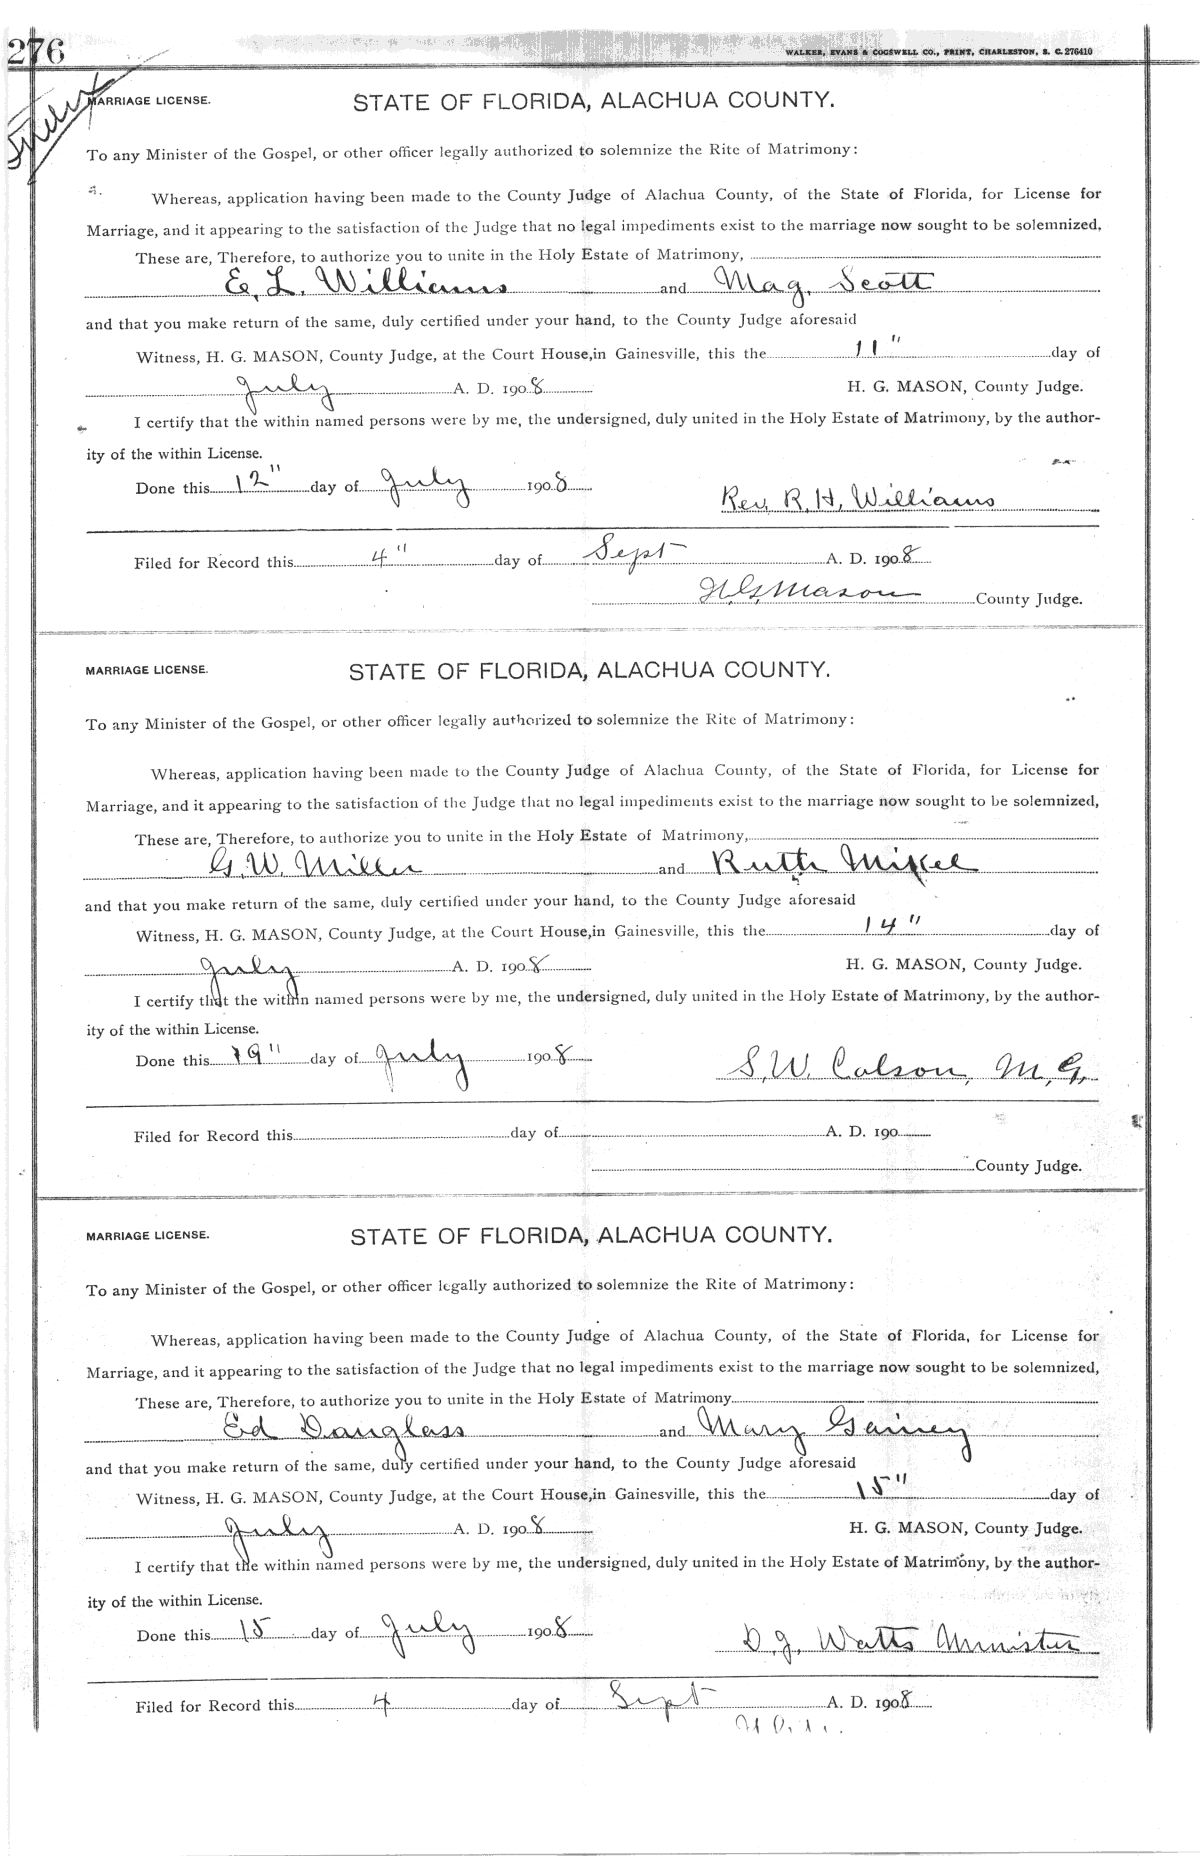 276
WALKER, EVANS & COGSWELL CO., PRINT, CHARLESTON, S. C. 276410
Index
MARRIAGE LICENSE. STATE OF FLORIDA, ALACHUA COUNTY.
To any Minister of the Gospel, or other officer legally authorized to solemnize the Rite of Matrimony:
Whereas, application having been made to the County Judge of Alachua County, of the State of Florida, for License for
Marriage, and it appearing to the satisfaction of the Judge that no legal impediments exist to the marriage now sought to be solemnized,
These are, Therefore, to authorize you to unite in the Holy Estate of Matrimony,
E. L. Williams and Mag. Scott
and that you make return of the same, duly certified under your hand, to the County Judge aforesaid
Witness, H. G. MASON, County Judge, at the Court House, in Gainesville, this the 11" day of
July A. D. 1908 H. G. MASON, County Judge.
I certify that the within named persons were by me, the undersigned, duly united in the Holy Estate of Matrimony, by the author-
ity of the within License.
Done this 12" day of July 1908
Rev. R. H. Williams
Filed for Record this 4" day of Sept A. D. 1908
H. G. Mason County Judge.
MARRIAGE LICENSE. STATE OF FLORIDA, ALACHUA COUNTY.
To any Minister of the Gospel, or other officer legally authorized to solemnize the Rite of Matrimony:
Whereas, application having been made to the County Judge of Alachua County, of the State of Florida, for License for
Marriage, and it appearing to the satisfaction of the Judge that no legal impediments exist to the marriage now sought to be solemnized,
These are, Therefore, to authorize you to unite in the Holy Estate of Matrimony,
G. W. Miller and Ruth Mikel
and that you make return of the same, duly certified under your hand, to the County Judge aforesaid
Witness, H. G. MASON, County Judge, at the Court House, in Gainesville, this the 14" day of
July A. D. 1908 H. G. MASON, County Judge.
I certify that the within named persons were by me, the undersigned, duly united in the Holy Estate of Matrimony, by the author-
ity of the within License.
Done this 19" day of July 1908
S. W. Colson, M. G.
Filed for Record this day of A. D. 190
County Judge.
MARRIAGE LICENSE. STATE OF FLORIDA, ALACHUA COUNTY.
To any Minister of the Gospel, or other officer legally authorized to solemnize the Rite of Matrimony:
Whereas, application having been made to the County Judge of Alachua County, of the State of Florida, for License for
Marriage, and it appearing to the satisfaction of the Judge that no legal impediments exist to the marriage now sought to be solemnized,
These are, Therefore, to authorize you to unite in the Holy Estate of Matrimony
Ed Douglass and Mary Gainey
and that you make return of the same, duly certified under your hand, to the County Judge aforesaid
Witness, H. G. MASON, County Judge, at the Court House, in Gainesville, this the 15" day of
July A. D. 1908 H. G. MASON, County Judge.
I certify that the within named persons were by me, the undersigned, duly united in the Holy Estate of Matrimony, by the author-
ity of the within License.
Done this 15 day of July 1908
D. J. Watts Minister
Filed for Record this 4 day of Sept A. D. 1908